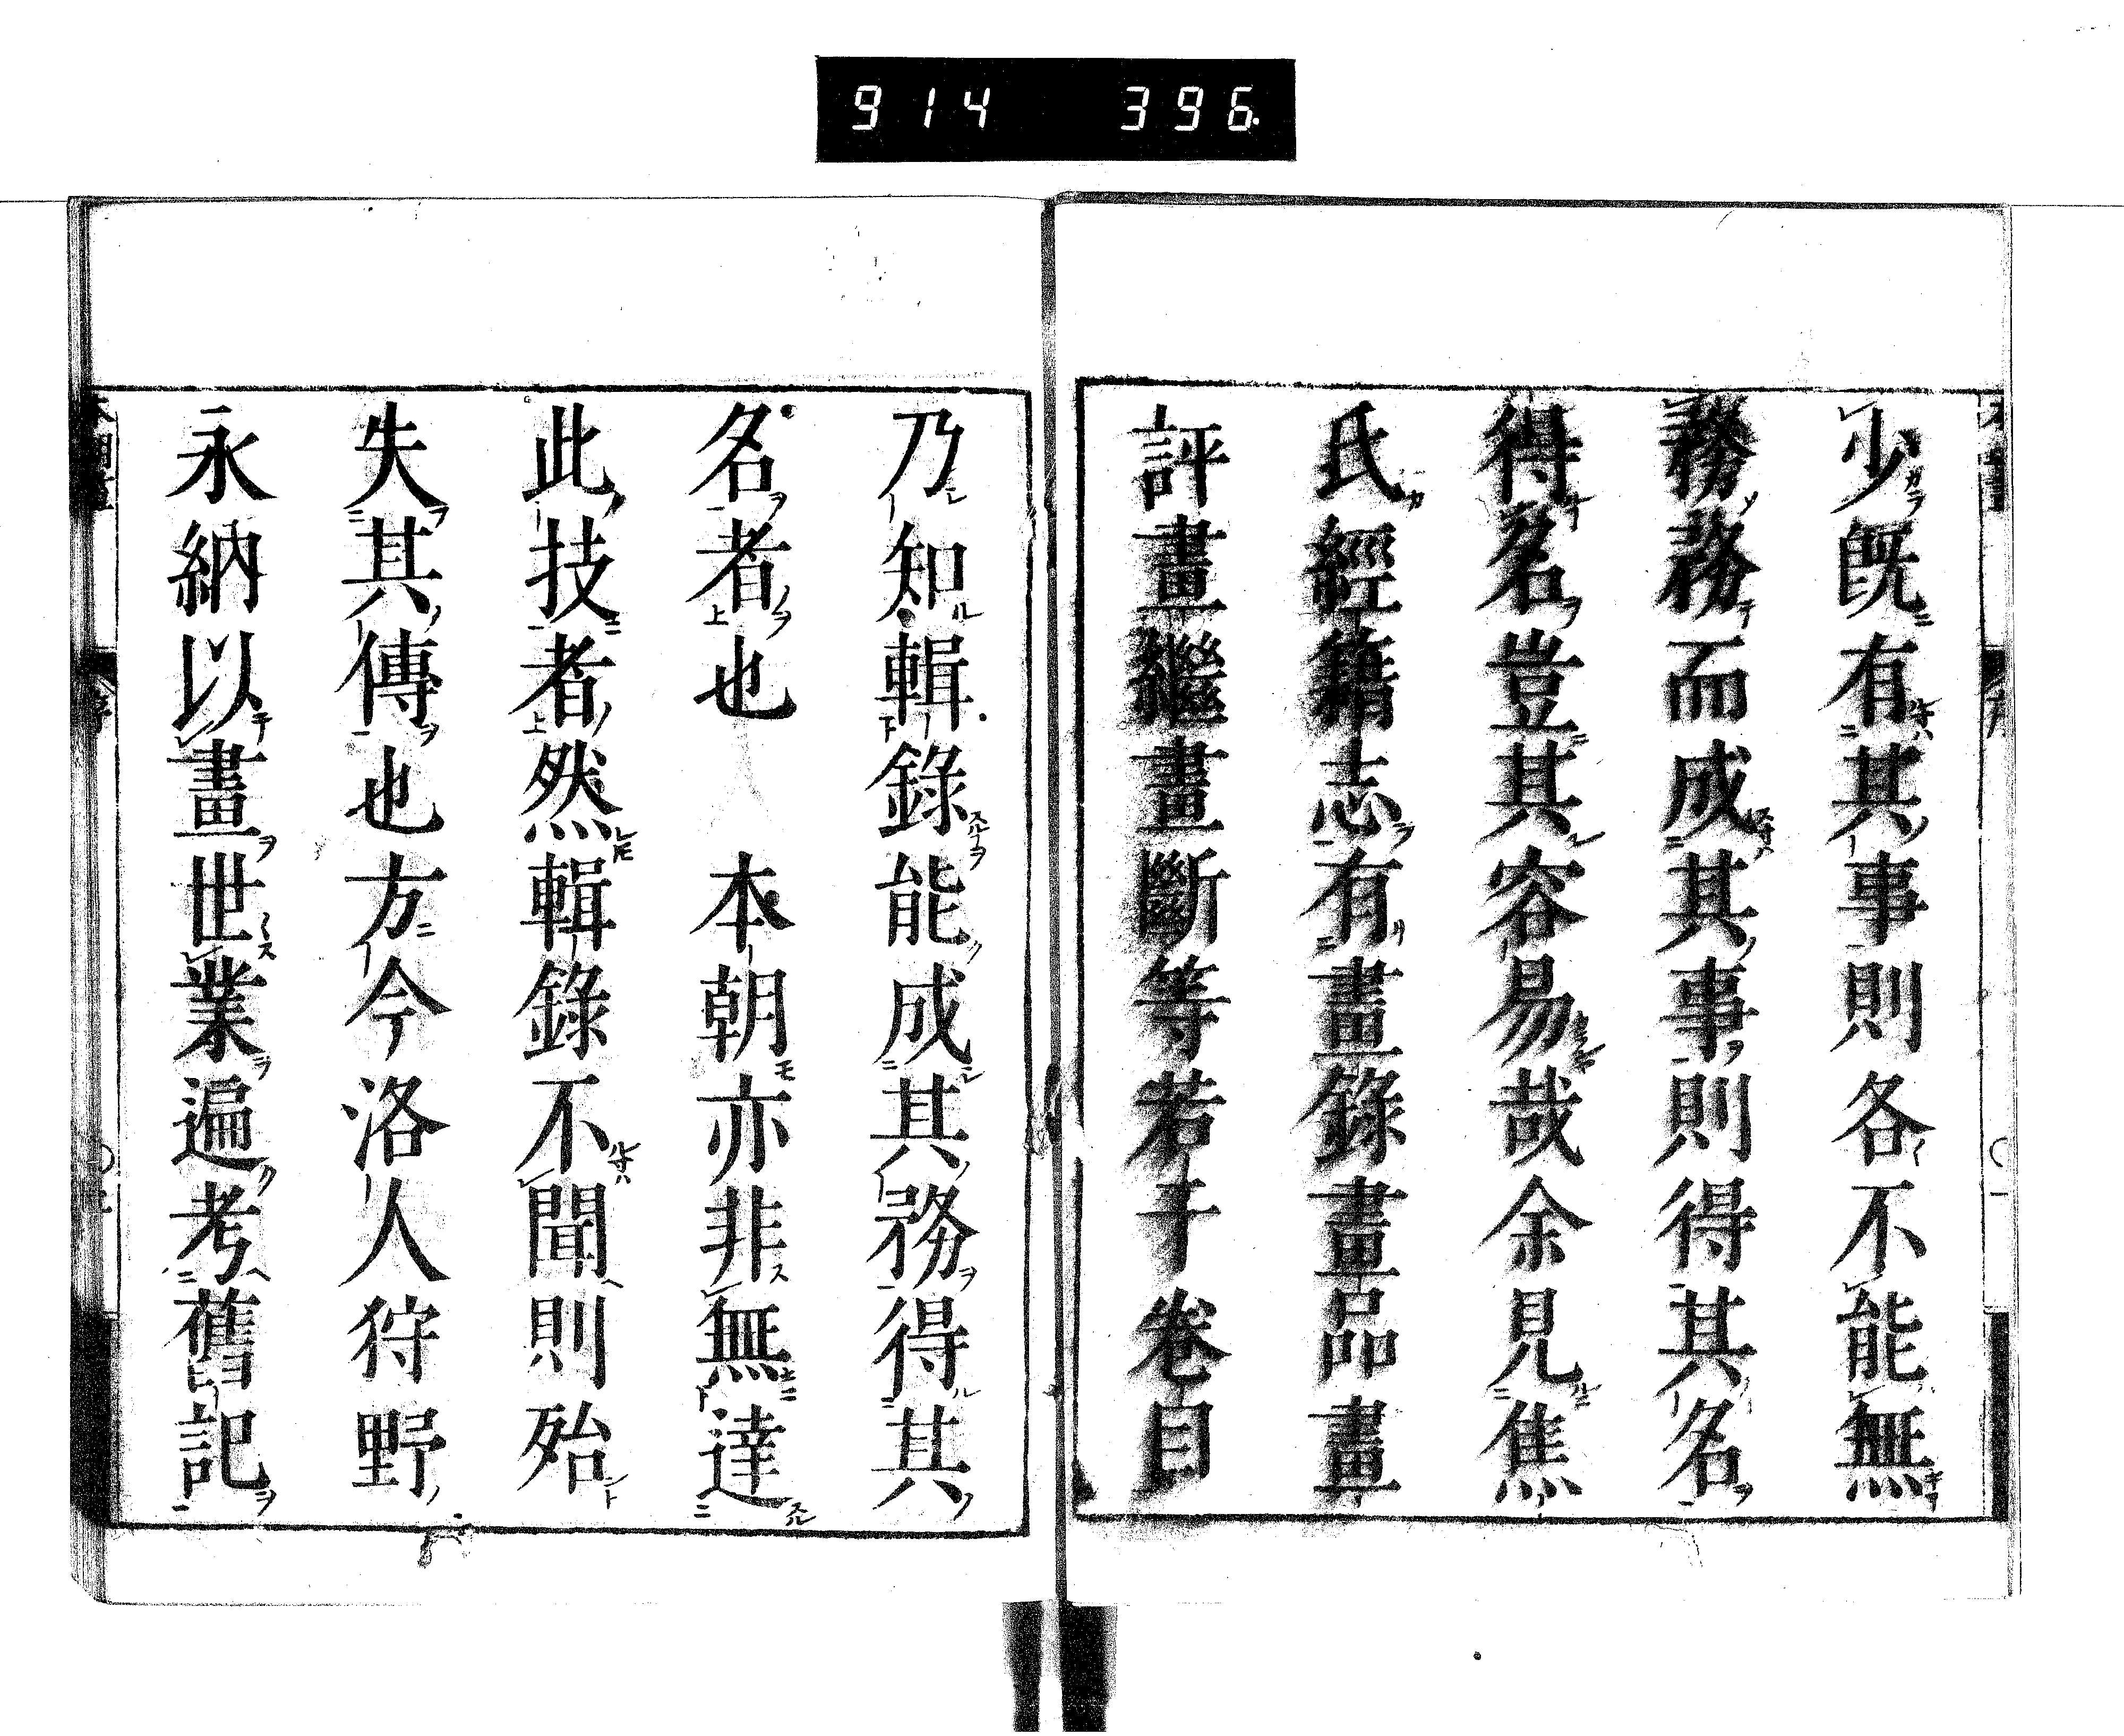 914 396
少既有其事則各不能無
務務而成其事則得其名
得名豈其容易哉余見焦
氏經籍志有畫錄畫品畫
評畫繼畫斷等若干卷目
乃知輯錄能成其務得其
名者也　本朝亦非無達
此技者然輯錄不聞則殆
失其傳也方今洛人狩野
永納以畫世業遍考舊記